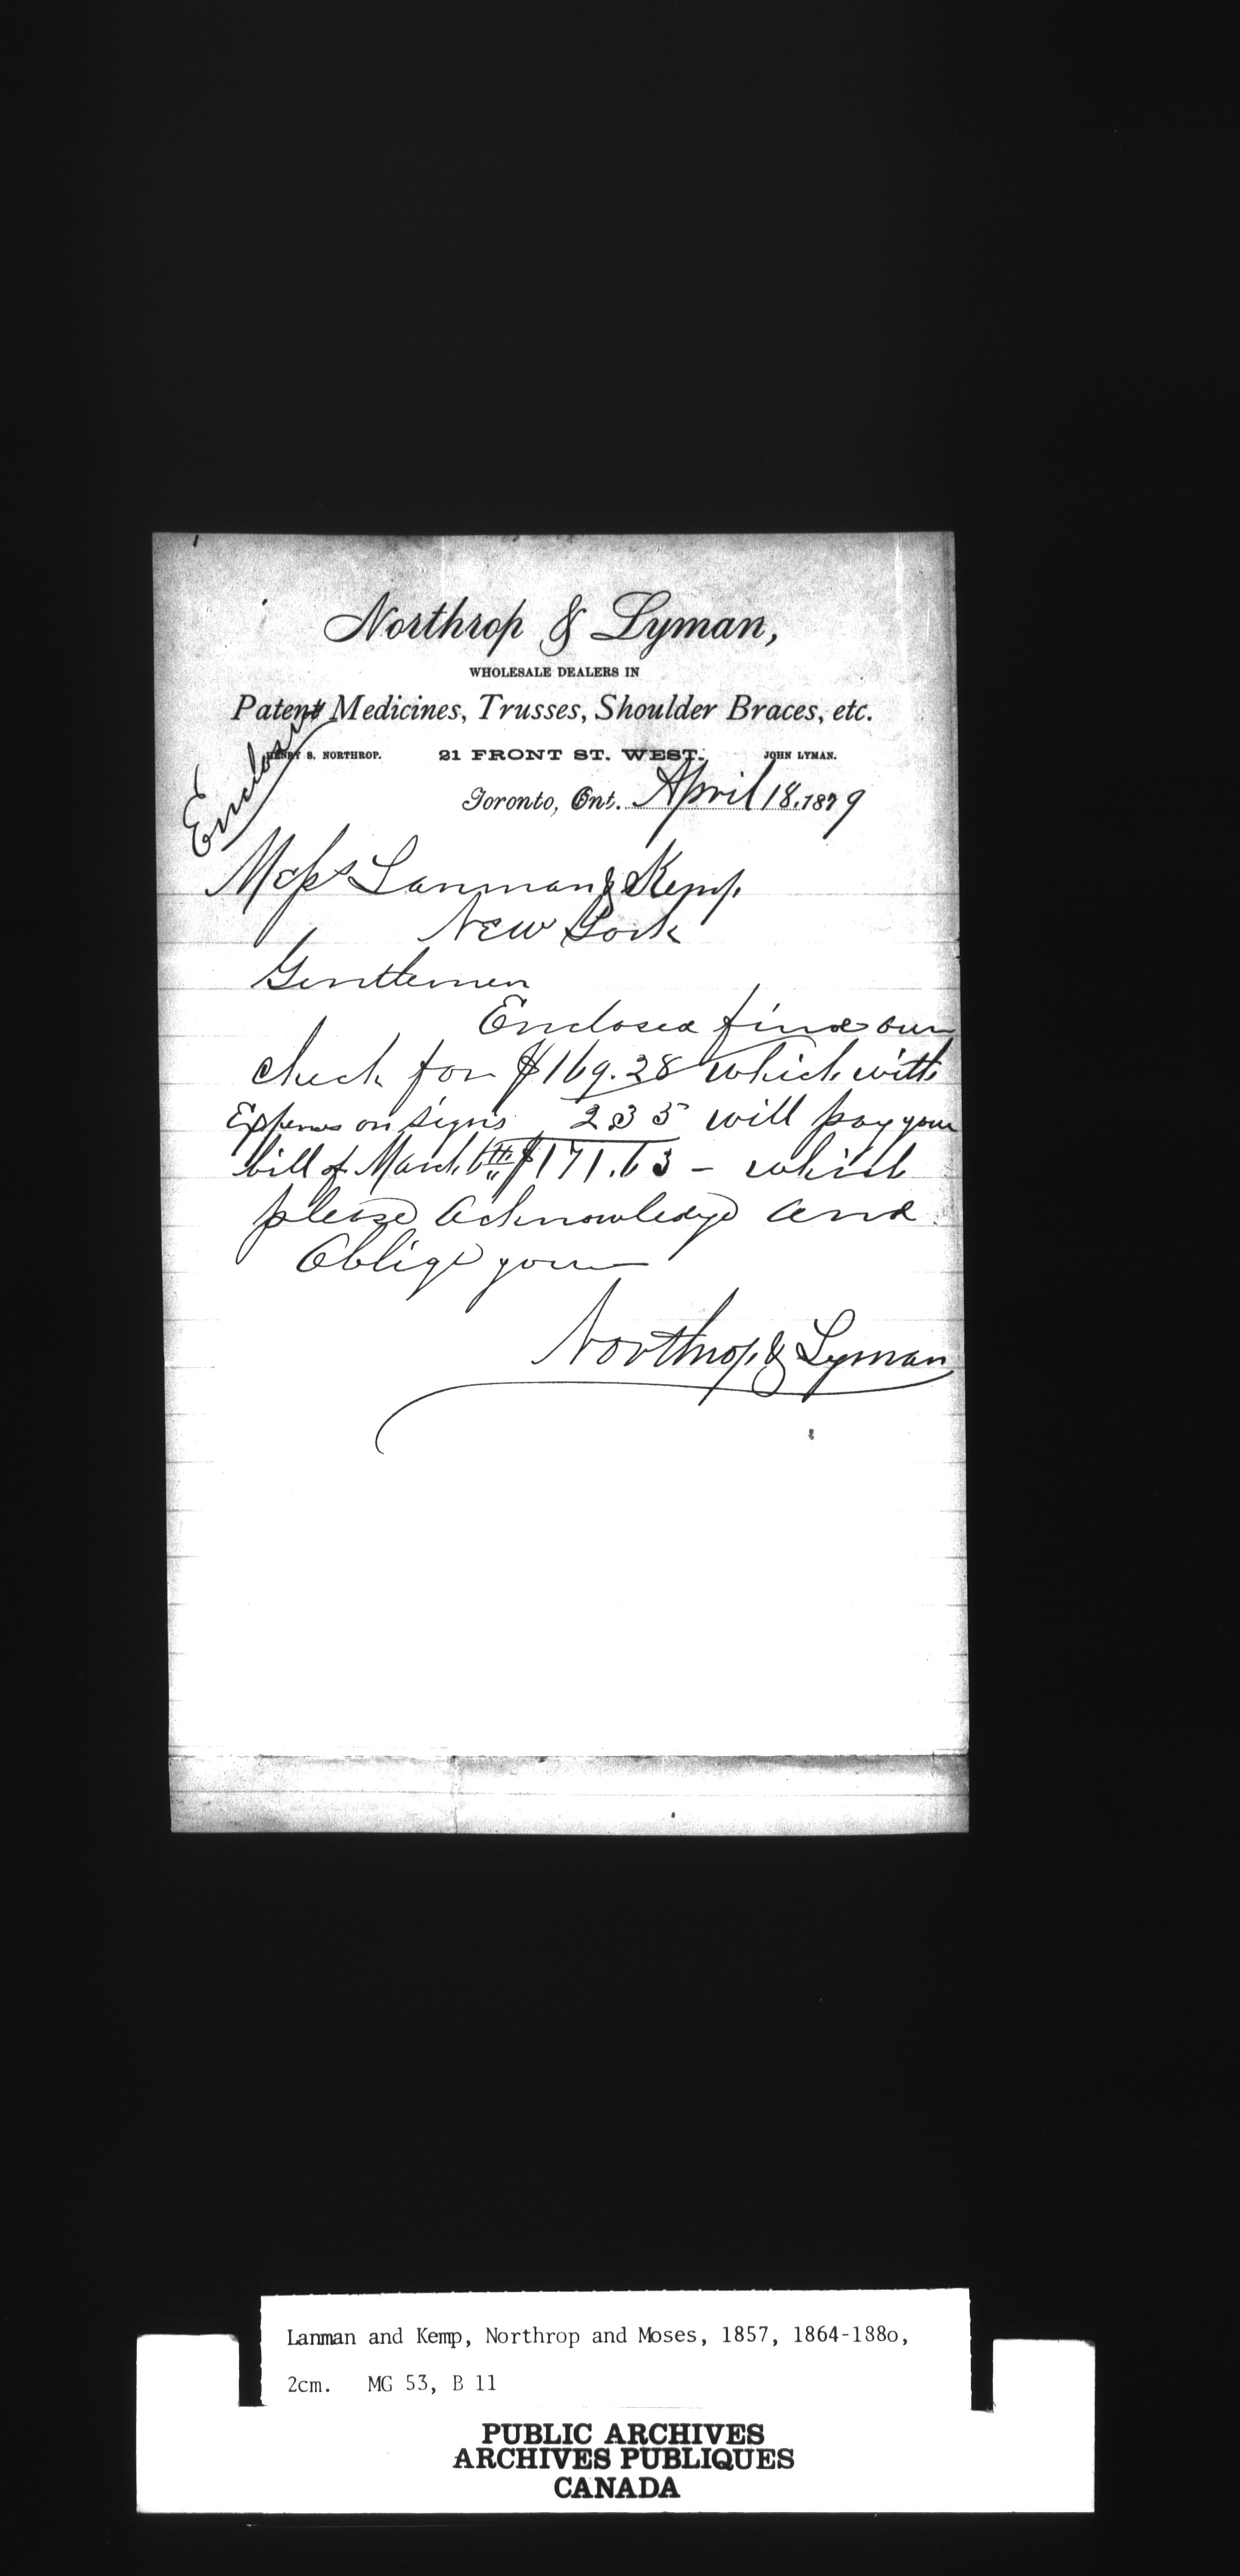 Northrop & Lyman,
WHOLESALE DEALERS IN
Patent Medicines, Trusses, Shoulder Braces, etc.
HENRY S. NORTHROP. 21 FRONT ST. WEST. JOHN LYMAN.
Toronto, Ont. April 18, 1879
Messrs Lanman & Kemp
New York
Gentlemen
Enclosed find our
check for $169.28 which with
Expenses on signs 2 35 will pay your
bill of March 6th $171.63 - which
please acknowledge and
Oblige yours
Northrop & Lyman
Lanman and Kemp, Northrop and Moses, 1857, 1864-188o,
2cm. MG 53, B 11
PUBLIC ARCHIVES
ARCHIVES PUBLIQUES
CANADA